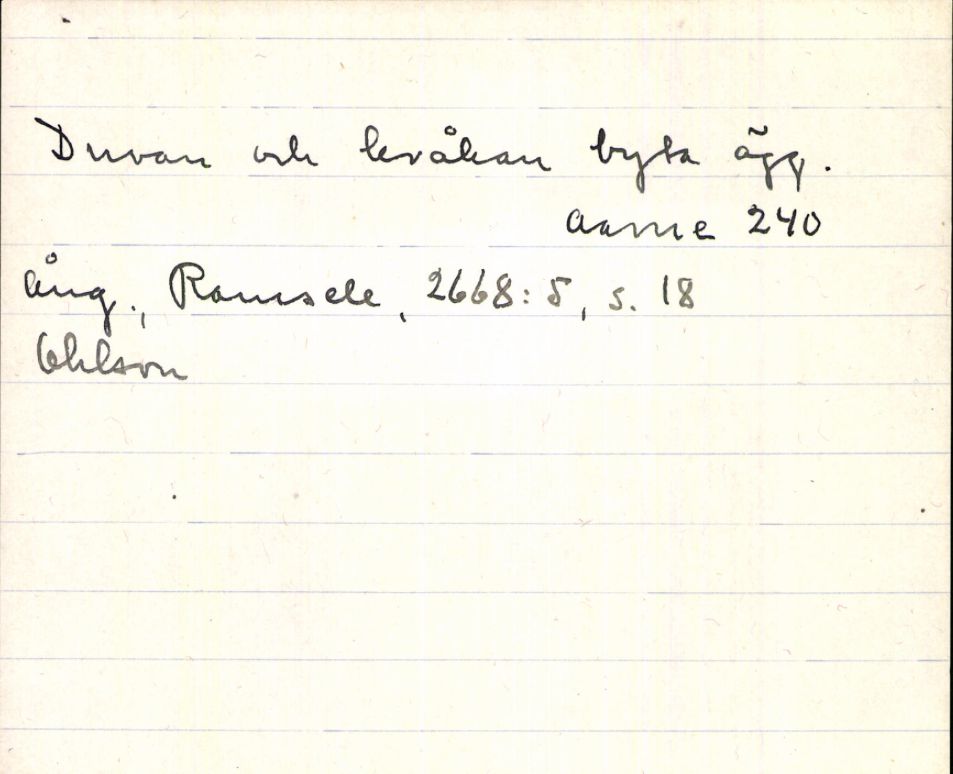 Duvan och kråkan byta ägg.
Aarne 240
Ång., Ramsele, 2668:5, s. 18
Ohlson